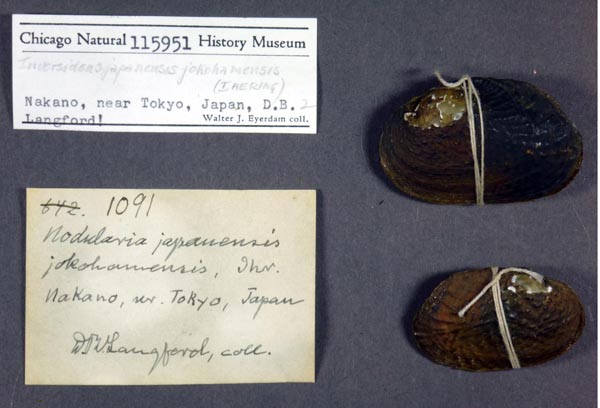 Chicago Natural 115951 History Museum
Inversidens japanensis jokohamensis
(IHERING)
Nakano, near Tokyo, Japan, D.B. 2
Langford! Walter J. Eyerdam coll.
642. 1091
Nodularia japanensis
jokohamensis, Ihr.
Nakano, nr. Tokyo, Japan
D.B. Langford, coll.